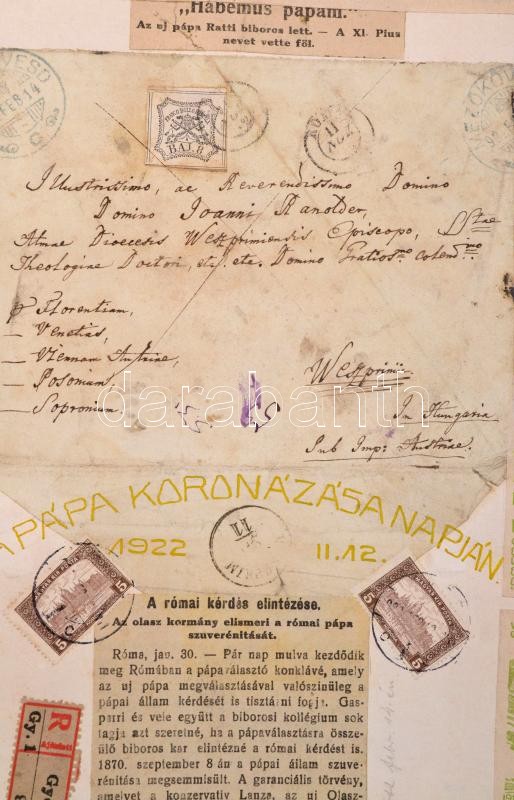 „Habemus papam."
Az uj pápa Ratti biboros lett. — A XI. Pius
nevet vette föl.
FRANCO BOLLO POSTALE
BAJ. 8
Illustrissimo, ac Reverendissimo Domino
Domino Joanni Ranolder,
Almae Dioecesis Weszprimiensis Episcopo, SStae
Theologiae Doctori, etc. etc. Domino Gratiosmo colendmo
p Florentiam,
— Venetias,
— Viennam Austriae,
— Posonium,
— Sopronium,
Weszprimii.
In Hungaria
Sub Imp: Austriae.
darabanth
A PÁPA KORONÁZÁSA NAPJÁN
1922 II.12.
5
5
A római kérdés elintézése.
Az olasz kormány elismeri a római pápa
szuverénitását.
Róma, jan. 30. — Pár nap mulva kezdődik
meg Rómában a pápaválasztó konklávé, amely
az uj pápa megválasztásával valószinüleg a
pápai állam kérdését is tisztázni fogja. Gas-
parri és vele együtt a biborosi kollégium sok
tagja azt szeretné, ha a pápaválasztásra össze-
ülő biboros kar elintézné a római kérdést is.
1870. szeptember 8 án a pápai állam szuve-
rénitása megsemmisült. A garanciális törvény,
amelyet a konzervativ Lanza, az uj Olasz-
R
Ajánlott
Gy. 1